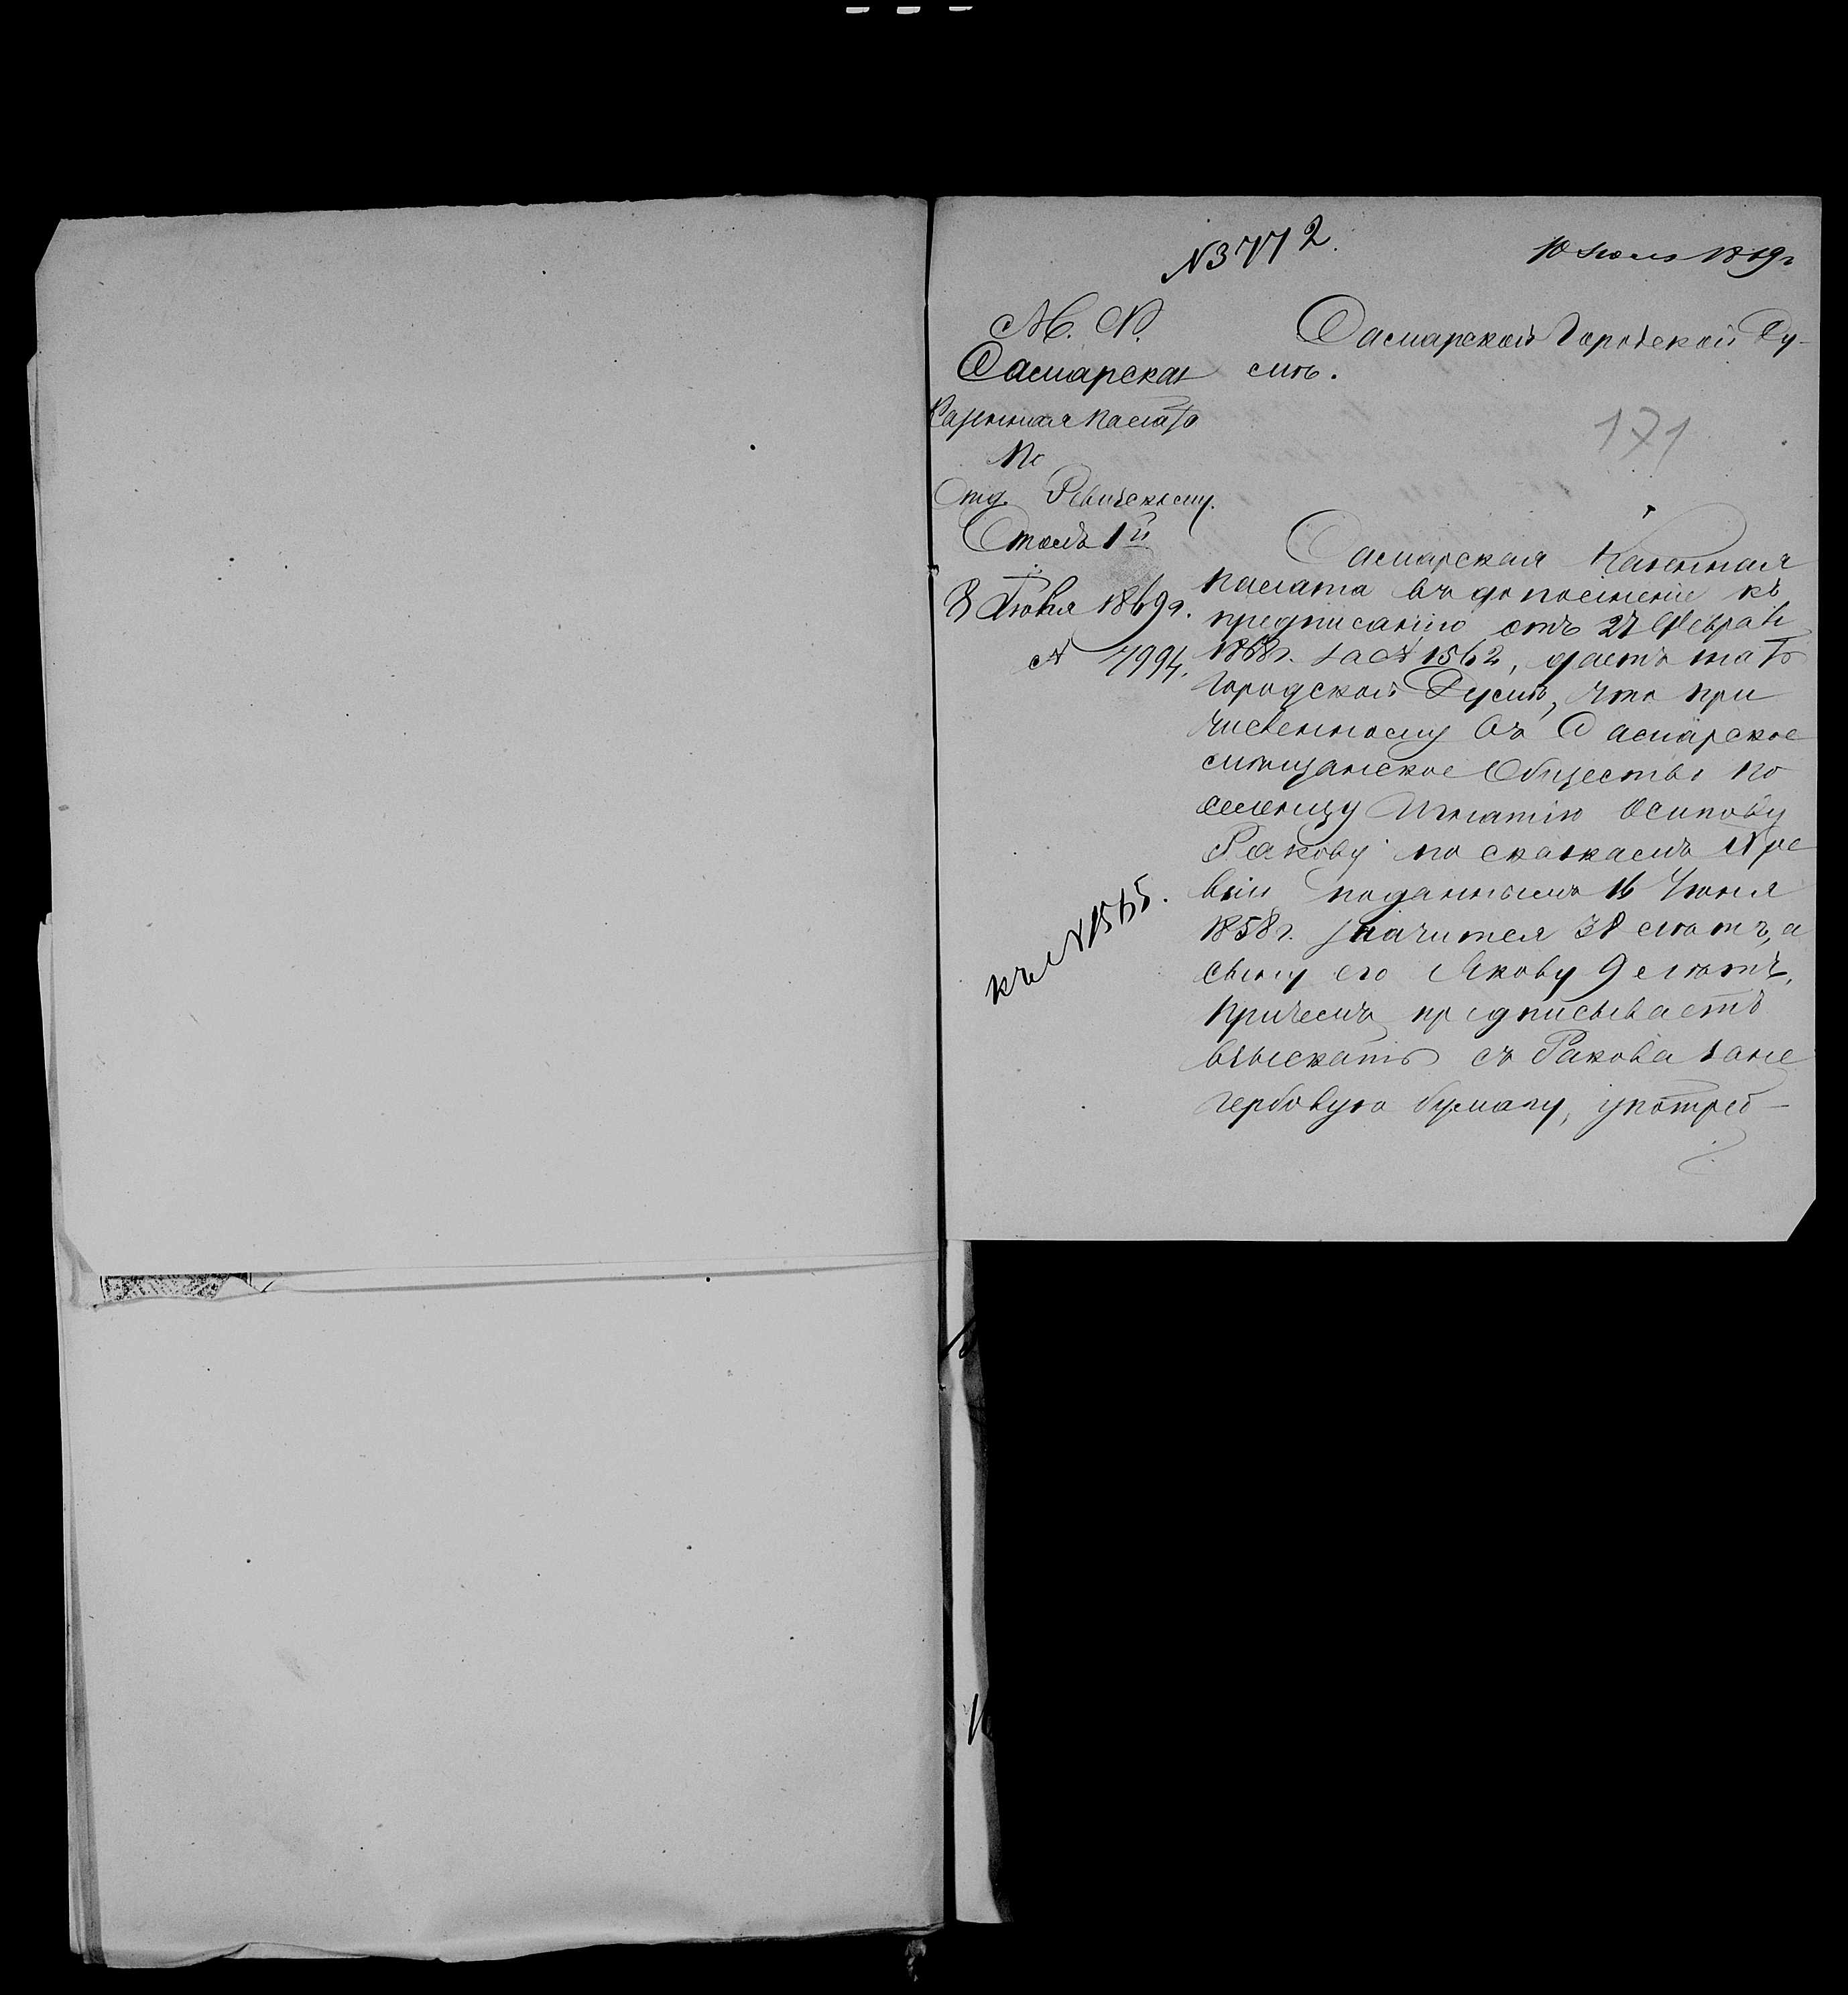 № 3772.
10 Июля 1869г
М. Ф.
Самарская
Казенная Палата
По
Отд. Ревизскому.
Столъ 1й
8 Июля 1869г.
№ 7994.
къ № 1565.
Самарской Городской Ду-
мѣ.
171
Самарская Казенная
Палата въ дополненіе къ
предписанію отъ 27 Февраля
1868г. за № 1562, даетъ знать
Городской Думѣ, что при
численному въ Самарское
мѣщанское Общество по
селенцу Игнатію Осипову
Ракову по сказкамъ ре
визіи поданнымъ 16 Июня
1858г. значится 38 лѣтъ, а
сыну его Якову 9 лѣтъ,
причемъ предписываетъ
взыскать съ Ракова за не
гербовую бумагу, употреб-